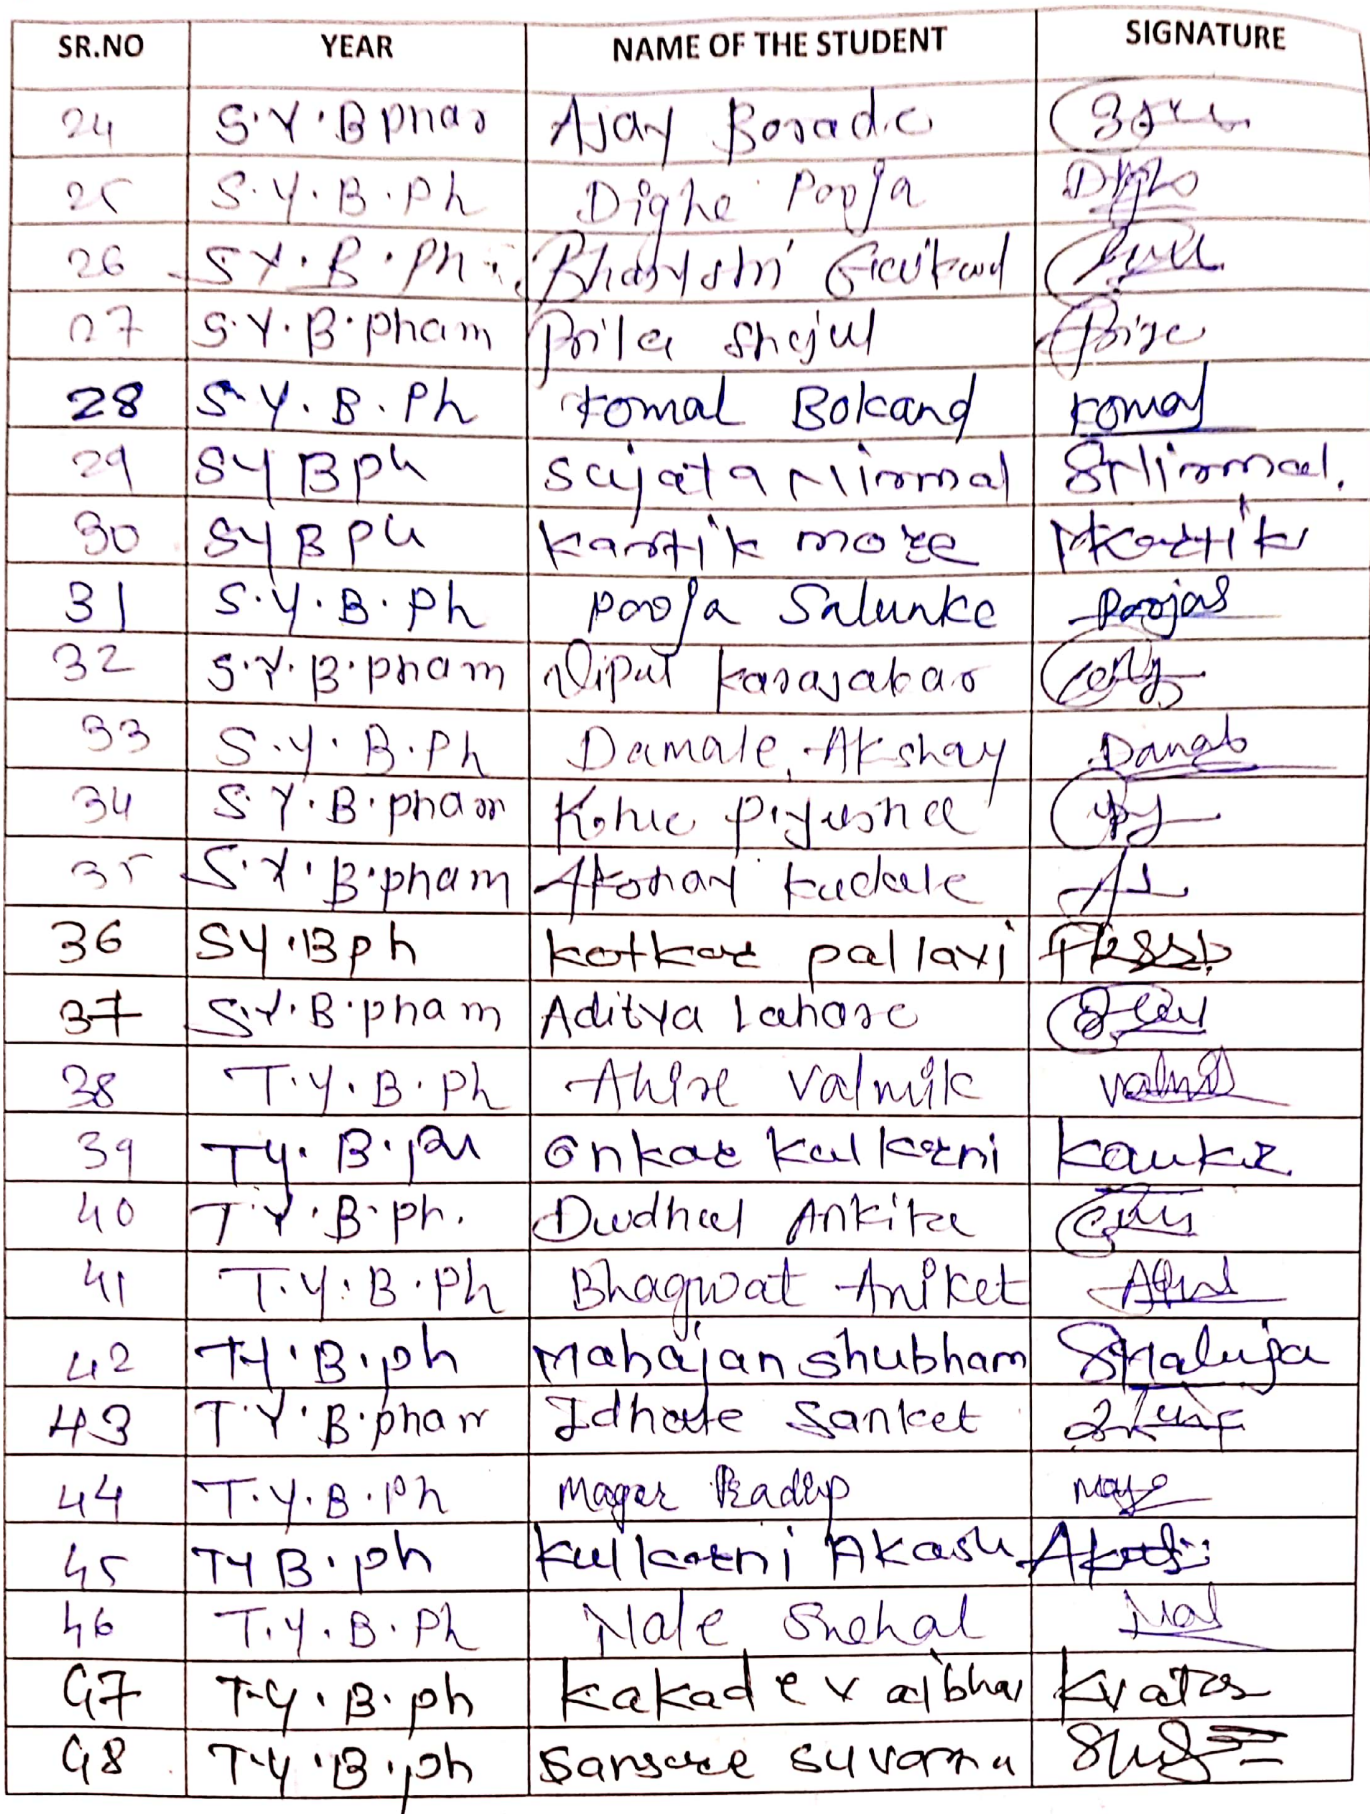 SR.NO YEAR NAME OF THE STUDENT SIGNATURE
24 S.Y.B phar Ajay Borade
25 S.Y.B.Ph Dighe Pooja
26 S.Y.B.Ph Gaikwad
27 S.Y.B.pharm Shejul
28 S.Y.B.Ph Komal Bokand Komal
29 SY BPh Sujata Nirmal SNirmal.
30 SY BPh Kartik more MKartik
31 S.Y.B.Ph pooja Salunke PoojaS
32 S.Y.B.pharm Vipul
33 S.Y.B.Ph Damale Akshay
34 S.Y.B.pharm
35 S.Y.B.pharm Akshay kudale
36 SY.Bph kotkar pallavi
37 S.Y.B.pharm Aditya Lahare
38 T.Y.B.Ph Ahire Valmik
39 TY.B.ph Onkar Kulkarni
40 T.Y.B.ph. Ankita
41 T.Y.B.Ph Bhagwat Aniket
42 TY.B.ph Mahajan shubham
43 T.Y.B.phar Idhate Sanket
44 T.Y.B.Ph Magar Pradip
45 TY B.ph Kulkarni Akash
46 T.Y.B.Ph Nale Snehal Nal
47 T.Y.B.ph kakade vaibhav
48 T.Y.B.ph Sansare suvarna